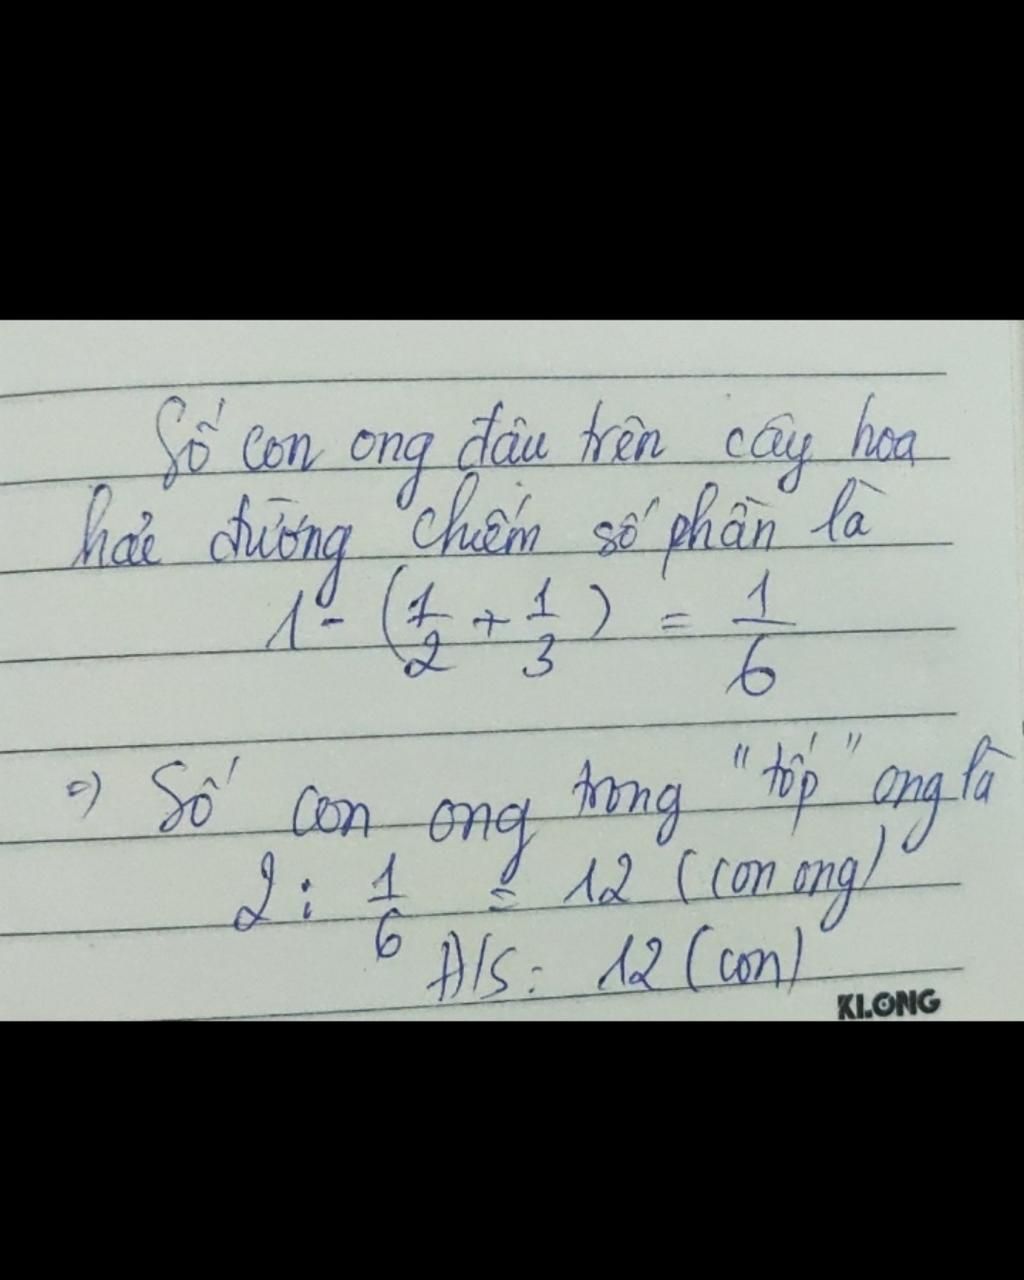 Số con ong đậu trên cây hoa
hải đường chiếm số phần là
1 - (1/2 + 1/3) = 1/6
=) Số con ong trong "tốp" ong là
2 : 1/6 = 12 (con ong)
Đ/S : 12 (con)
KLONG